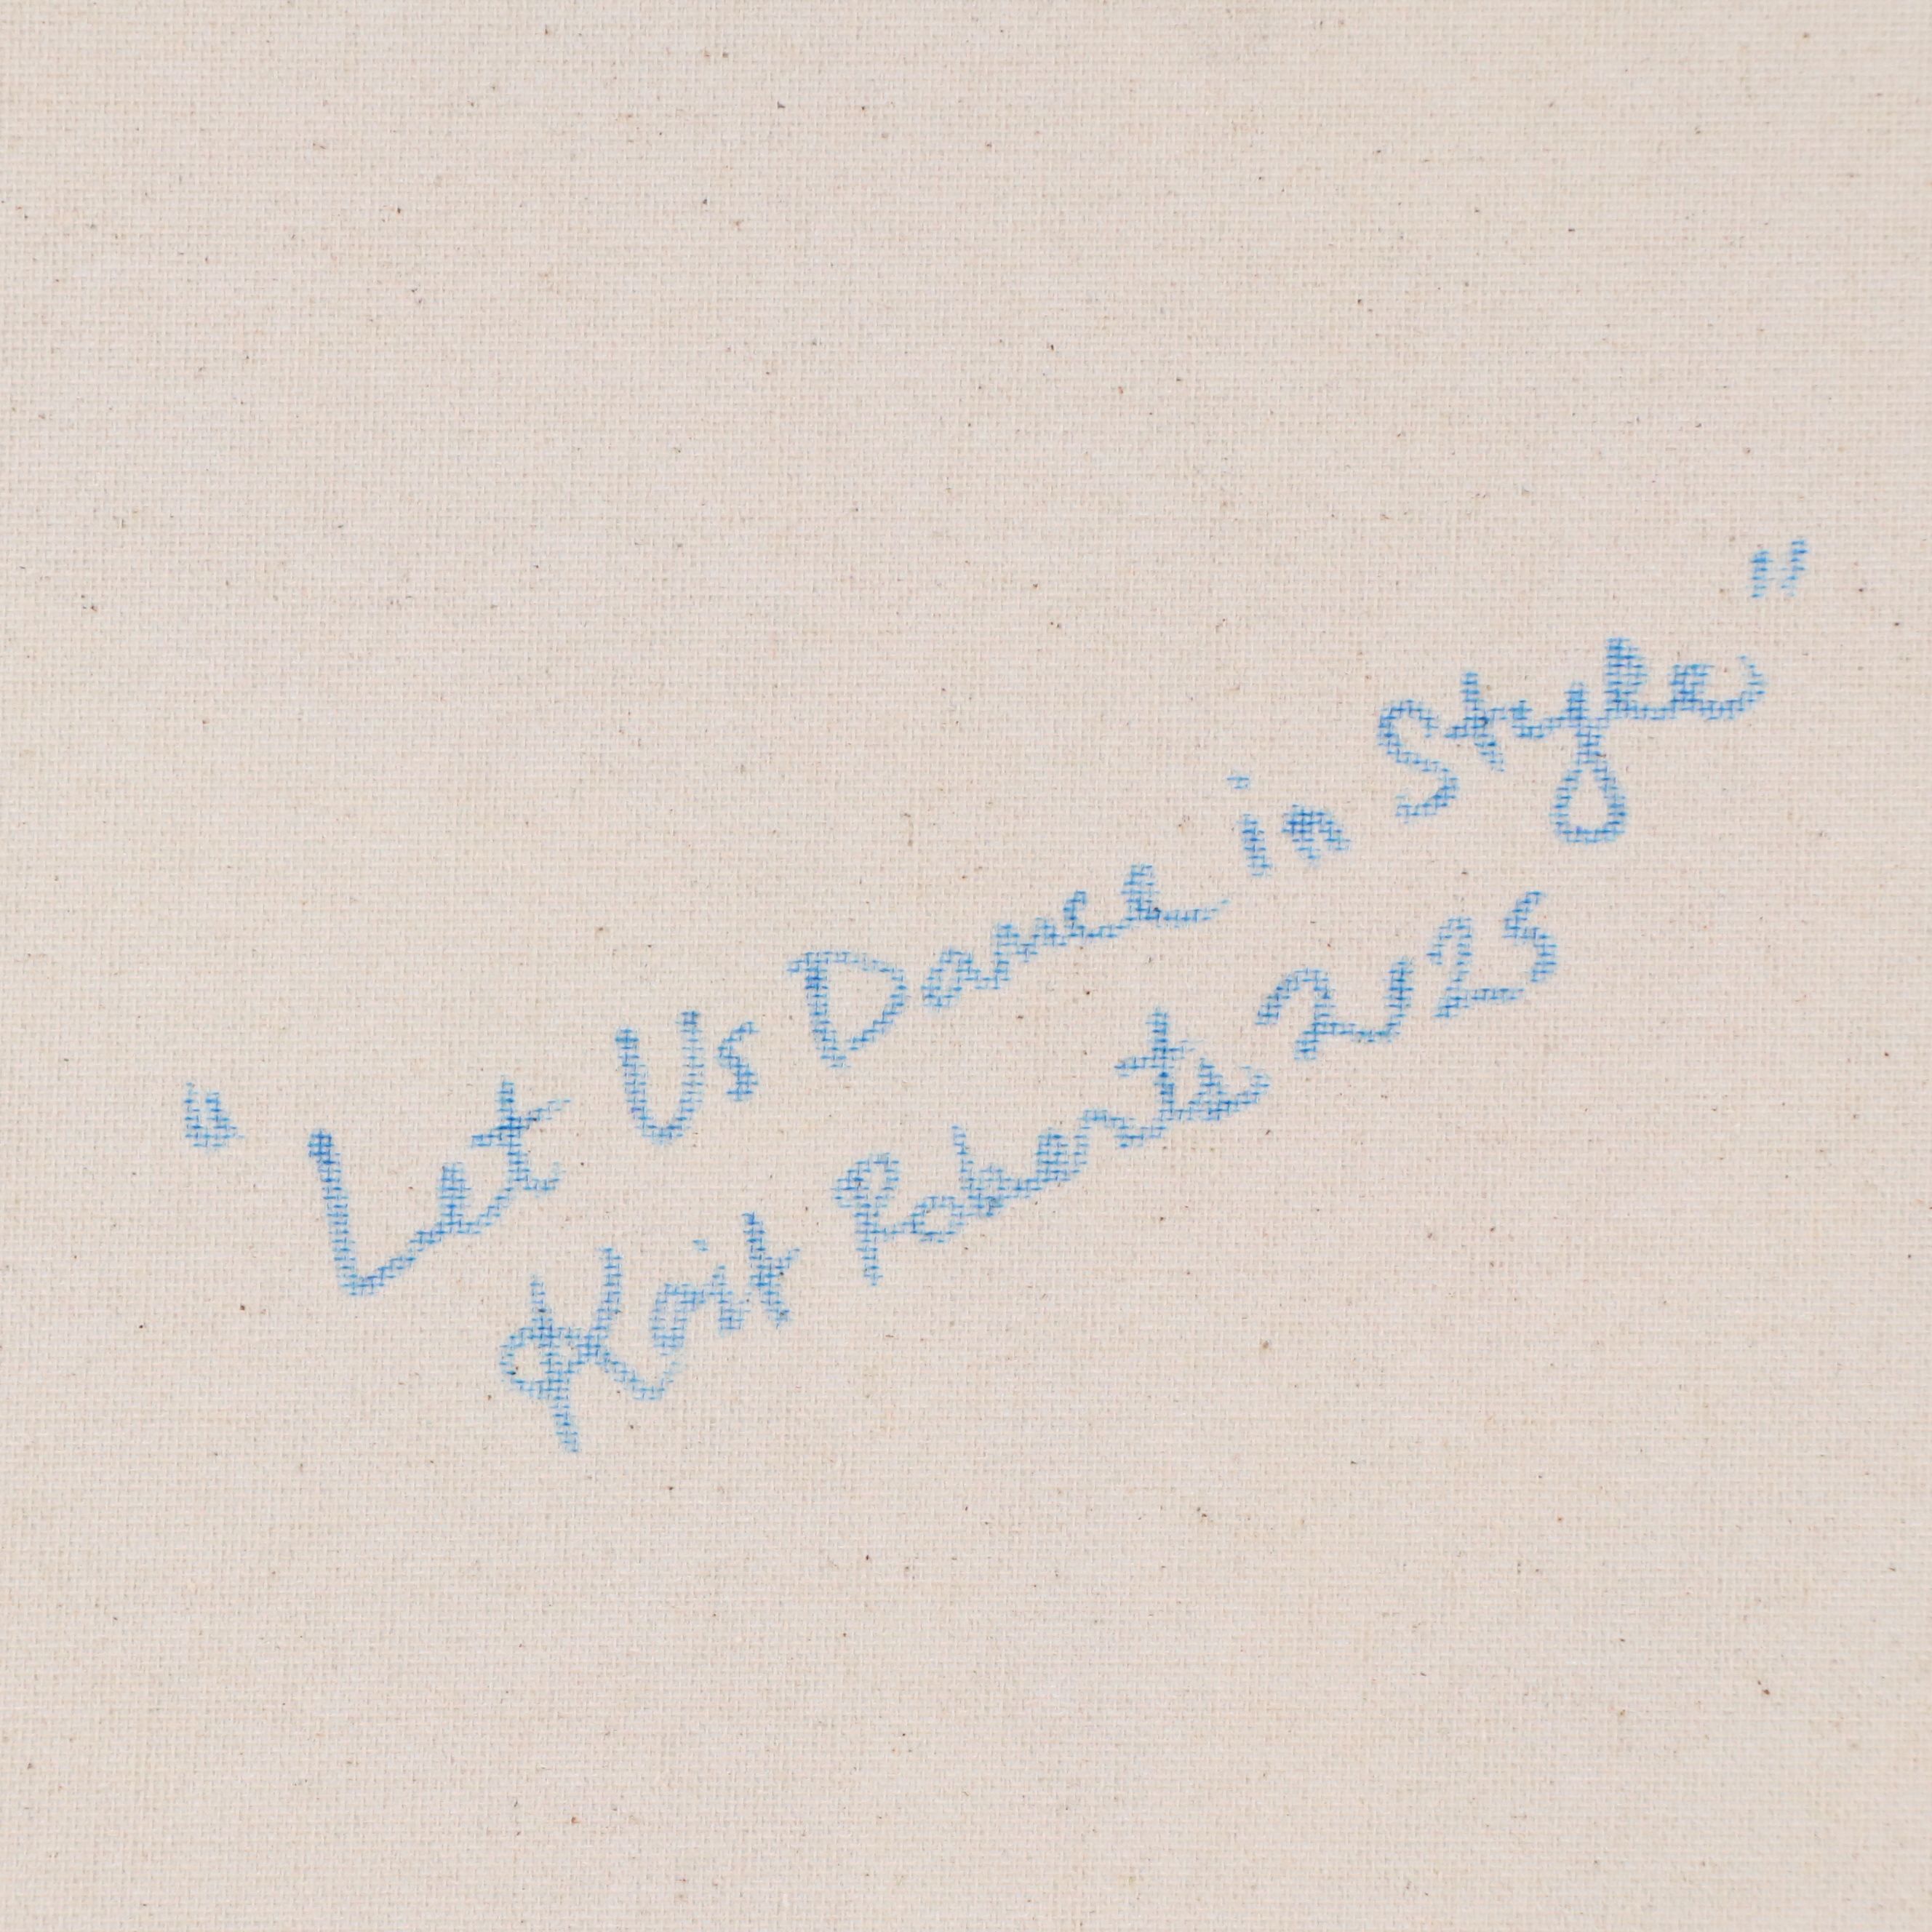 "Let Us Dance in Style"
Kait Roberts 2/25